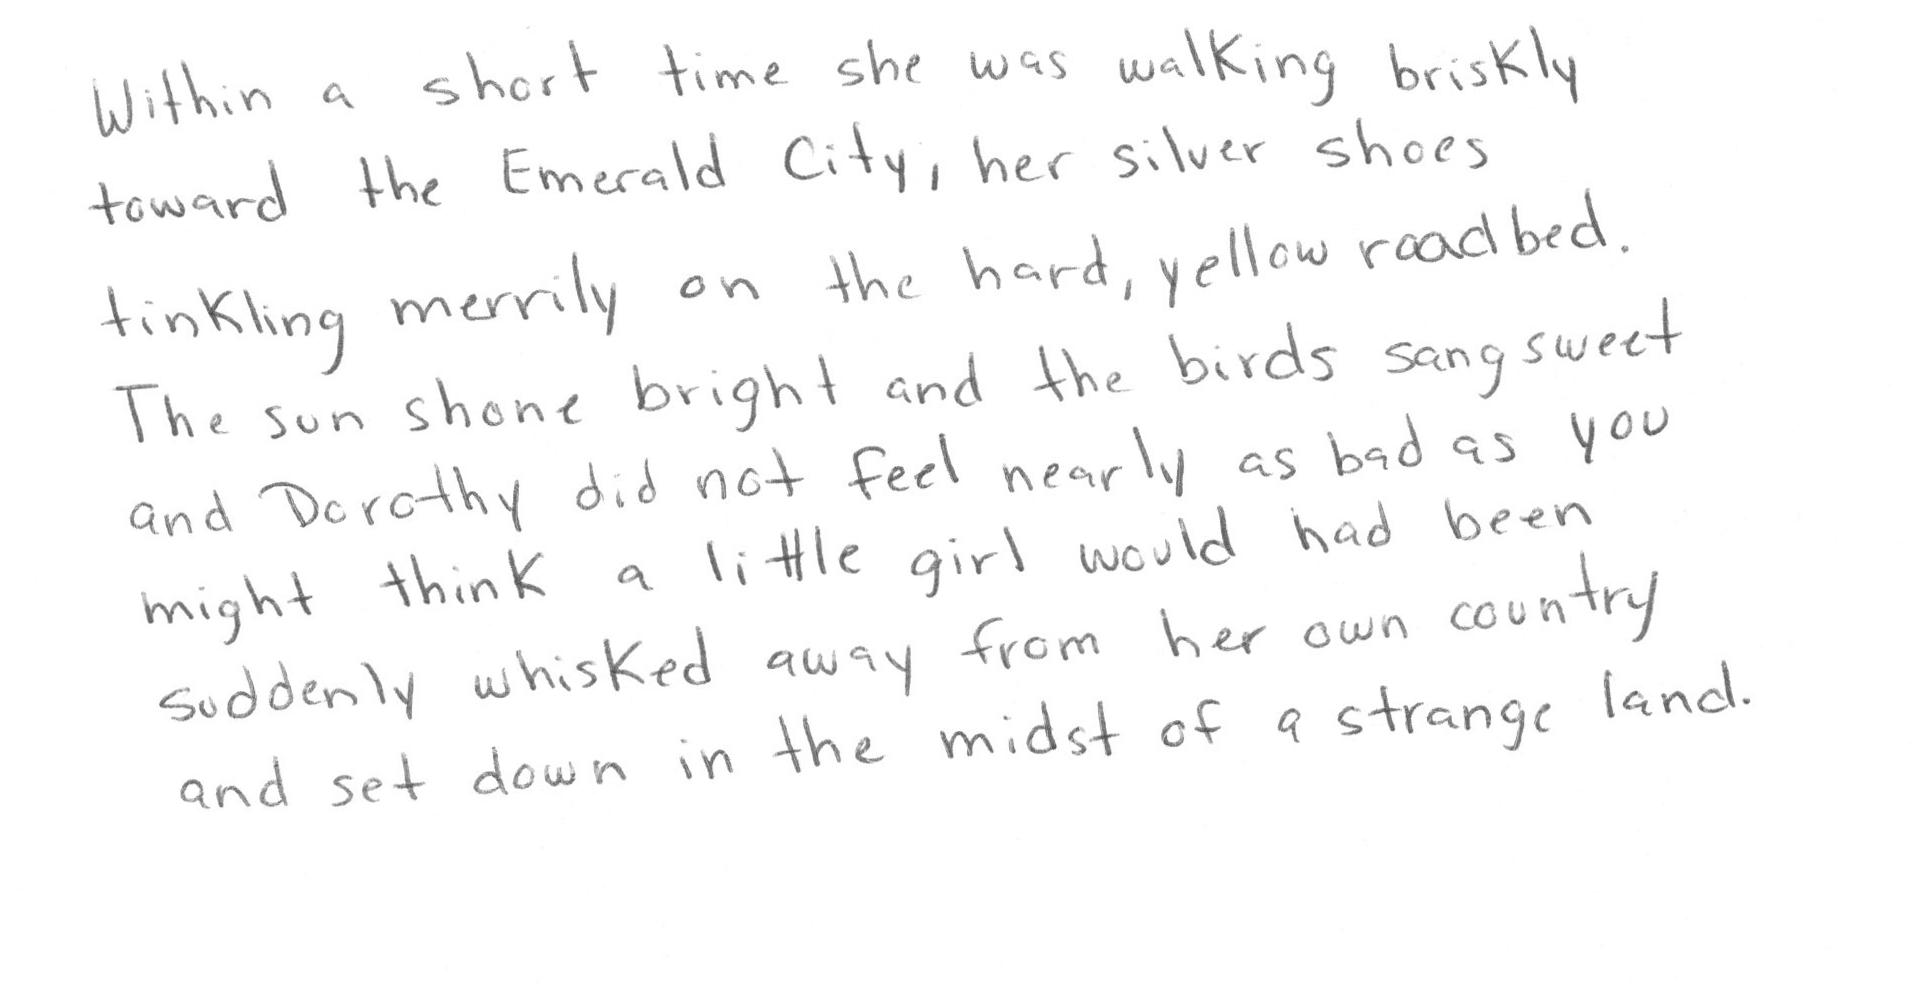 Within a short time she was walking briskly
toward the Emerald City, her silver shoes
tinkling merrily on the hard, yellow roadbed.
The sun shone bright and the birds sang sweet
and Dorothy did not feel nearly as bad as you
might think a little girl would had been
suddenly whisked away from her own country
and set down in the midst of a strange land.